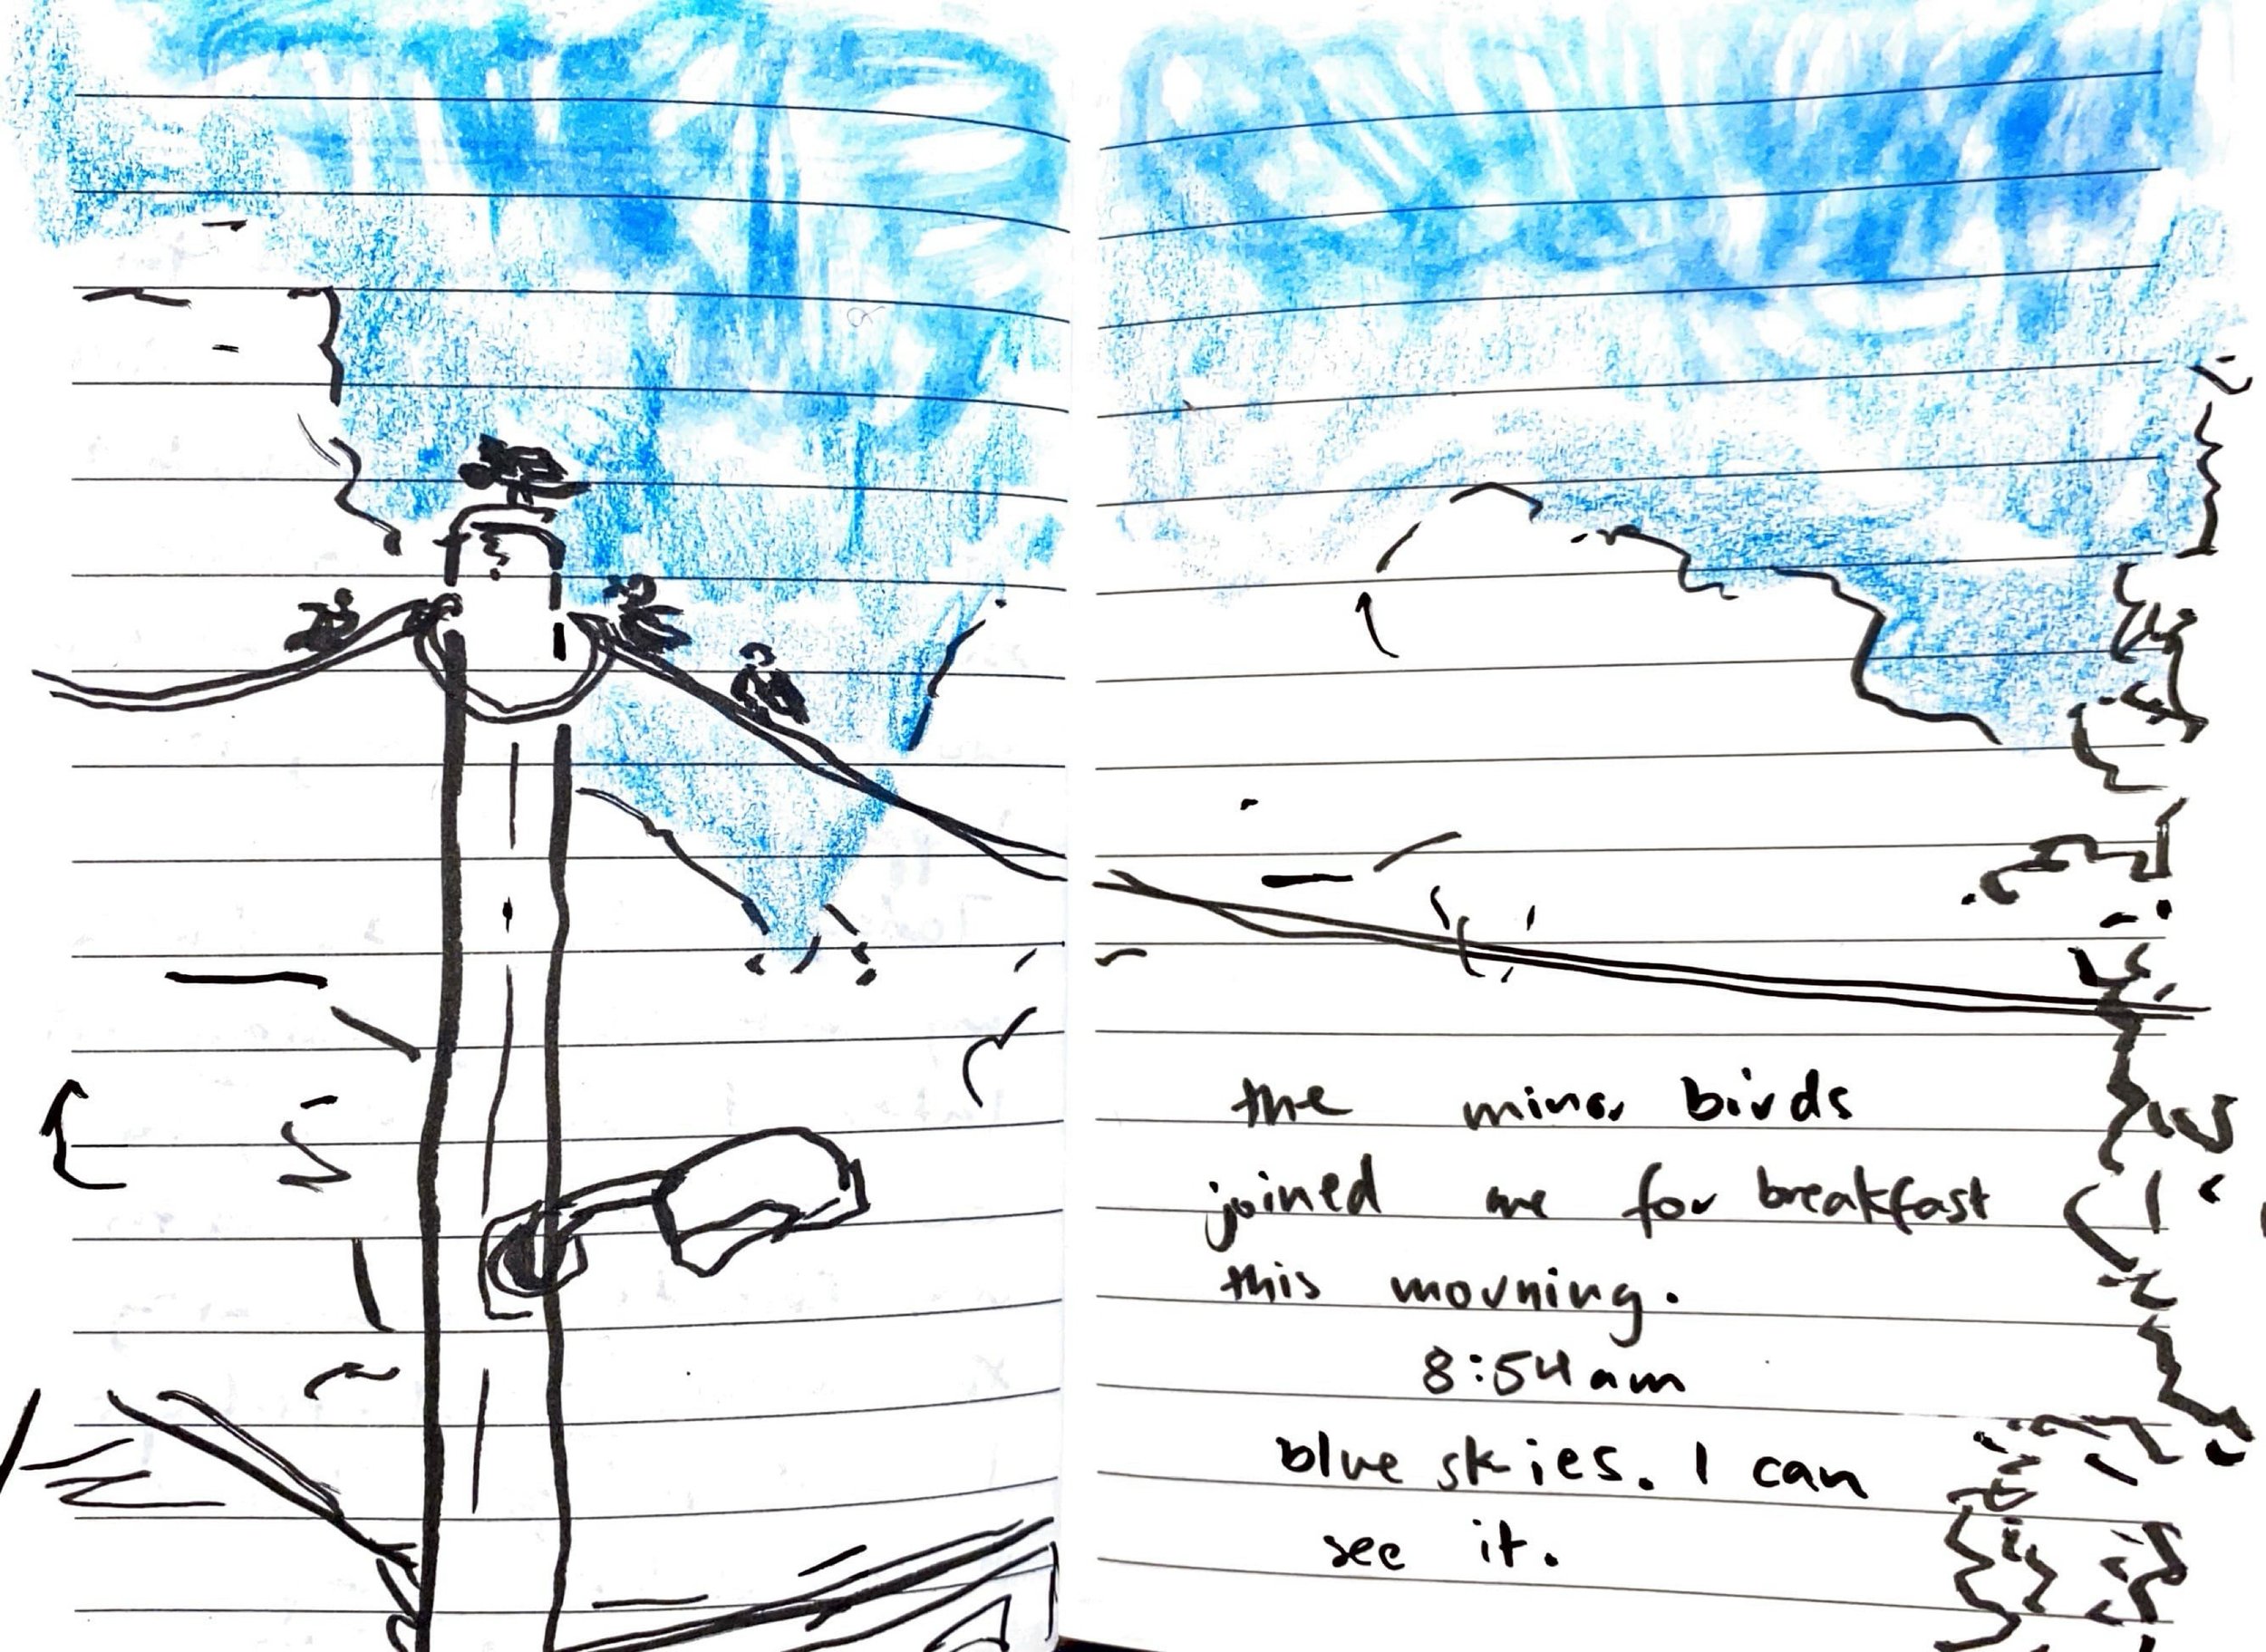 the minor birds
joined me for breakfast
this morning.
8:54am
blue skies. I can
see it.